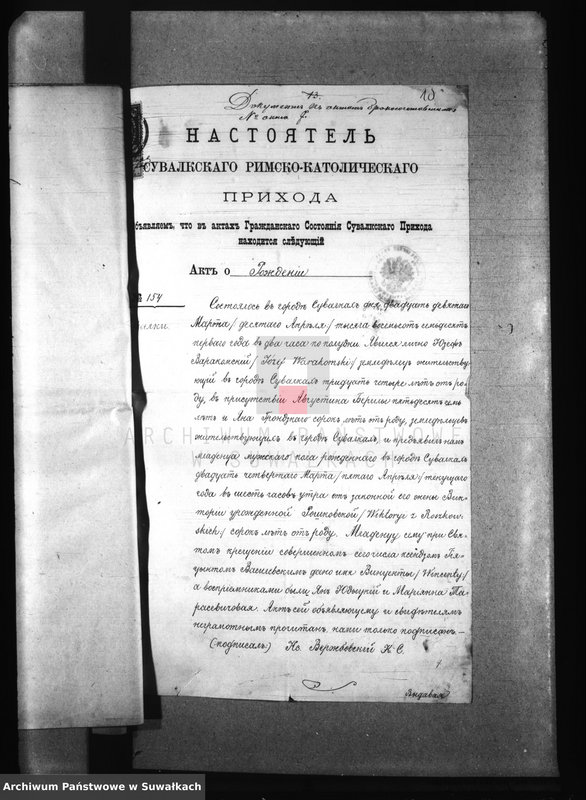 13.
10
Документъ къ актамъ бракосочетавшихся
№ акта
НАСТОЯТЕЛЬ
СУВАЛКСКАГО РИМСКО-КАТОЛИЧЕСКАГО
ПРИХОДА
бъявляемъ, что въ актахъ Гражданскаго Состоянія Сувалкскаго Прихода
находится слѣдующій
Актъ о Рожденіи
№ 154
Состоялось въ городѣ Сувалкахъ дня двадцать девятаго
Марта / десятаго Апрѣля / тысяча восемьсотъ семьдесятъ
перваго года въ два часа по полудни. Явился лично Юзефъ
Варакомскій / Józef Warakomski / земледѣлецъ жительству-
ющій въ городѣ Сувалкахъ тридцать четыре лѣтъ отъ ро-
ду, въ присутствіи Августина Березы пятьдесятъ семь
лѣтъ и Яна сорокъ лѣтъ отъ роду, земледѣльцевъ
жительствующихъ въ городѣ Сувалкахъ, и предъявилъ намъ
младенца мужескаго пола рожденнаго въ городѣ Сувалкахъ
двадцать четвертаго Марта / пятаго Апрѣля / текущаго
года въ шесть часовъ утра отъ законной его жены Вик-
торіи урожденной Рошковской / Wiktorya z Roszkow-
skich / сорокъ лѣтъ отъ роду. Младенцу сему при Свя-
томъ крещеніи совершенномъ сего числа ксендзомъ Гя-
цынтомъ Василевскимъ дано имя Винцентый / Wincenty /
а воспріемниками были Янъ и Маріянна Та-
расевичовая. Актъ сей объявляющему и свидѣтелямъ
неграмотнымъ прочитанъ, нами только подписанъ. —
(подписалъ:) Кс. Вержбовскій К. С.
Выдавая
ARCHIWUM PAŃSTWOWE
W SUWAŁKACH
Archiwum Państwowe w Suwałkach